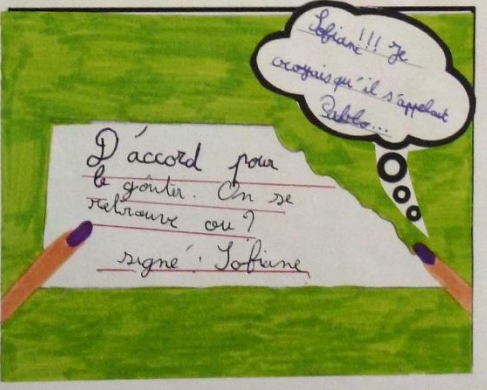 Sofiane!!! Je
croyais qu'il s'appelait
Pablo...
D'accord pour
le goûter. On se
retrouve ou?
signé: Sofiane